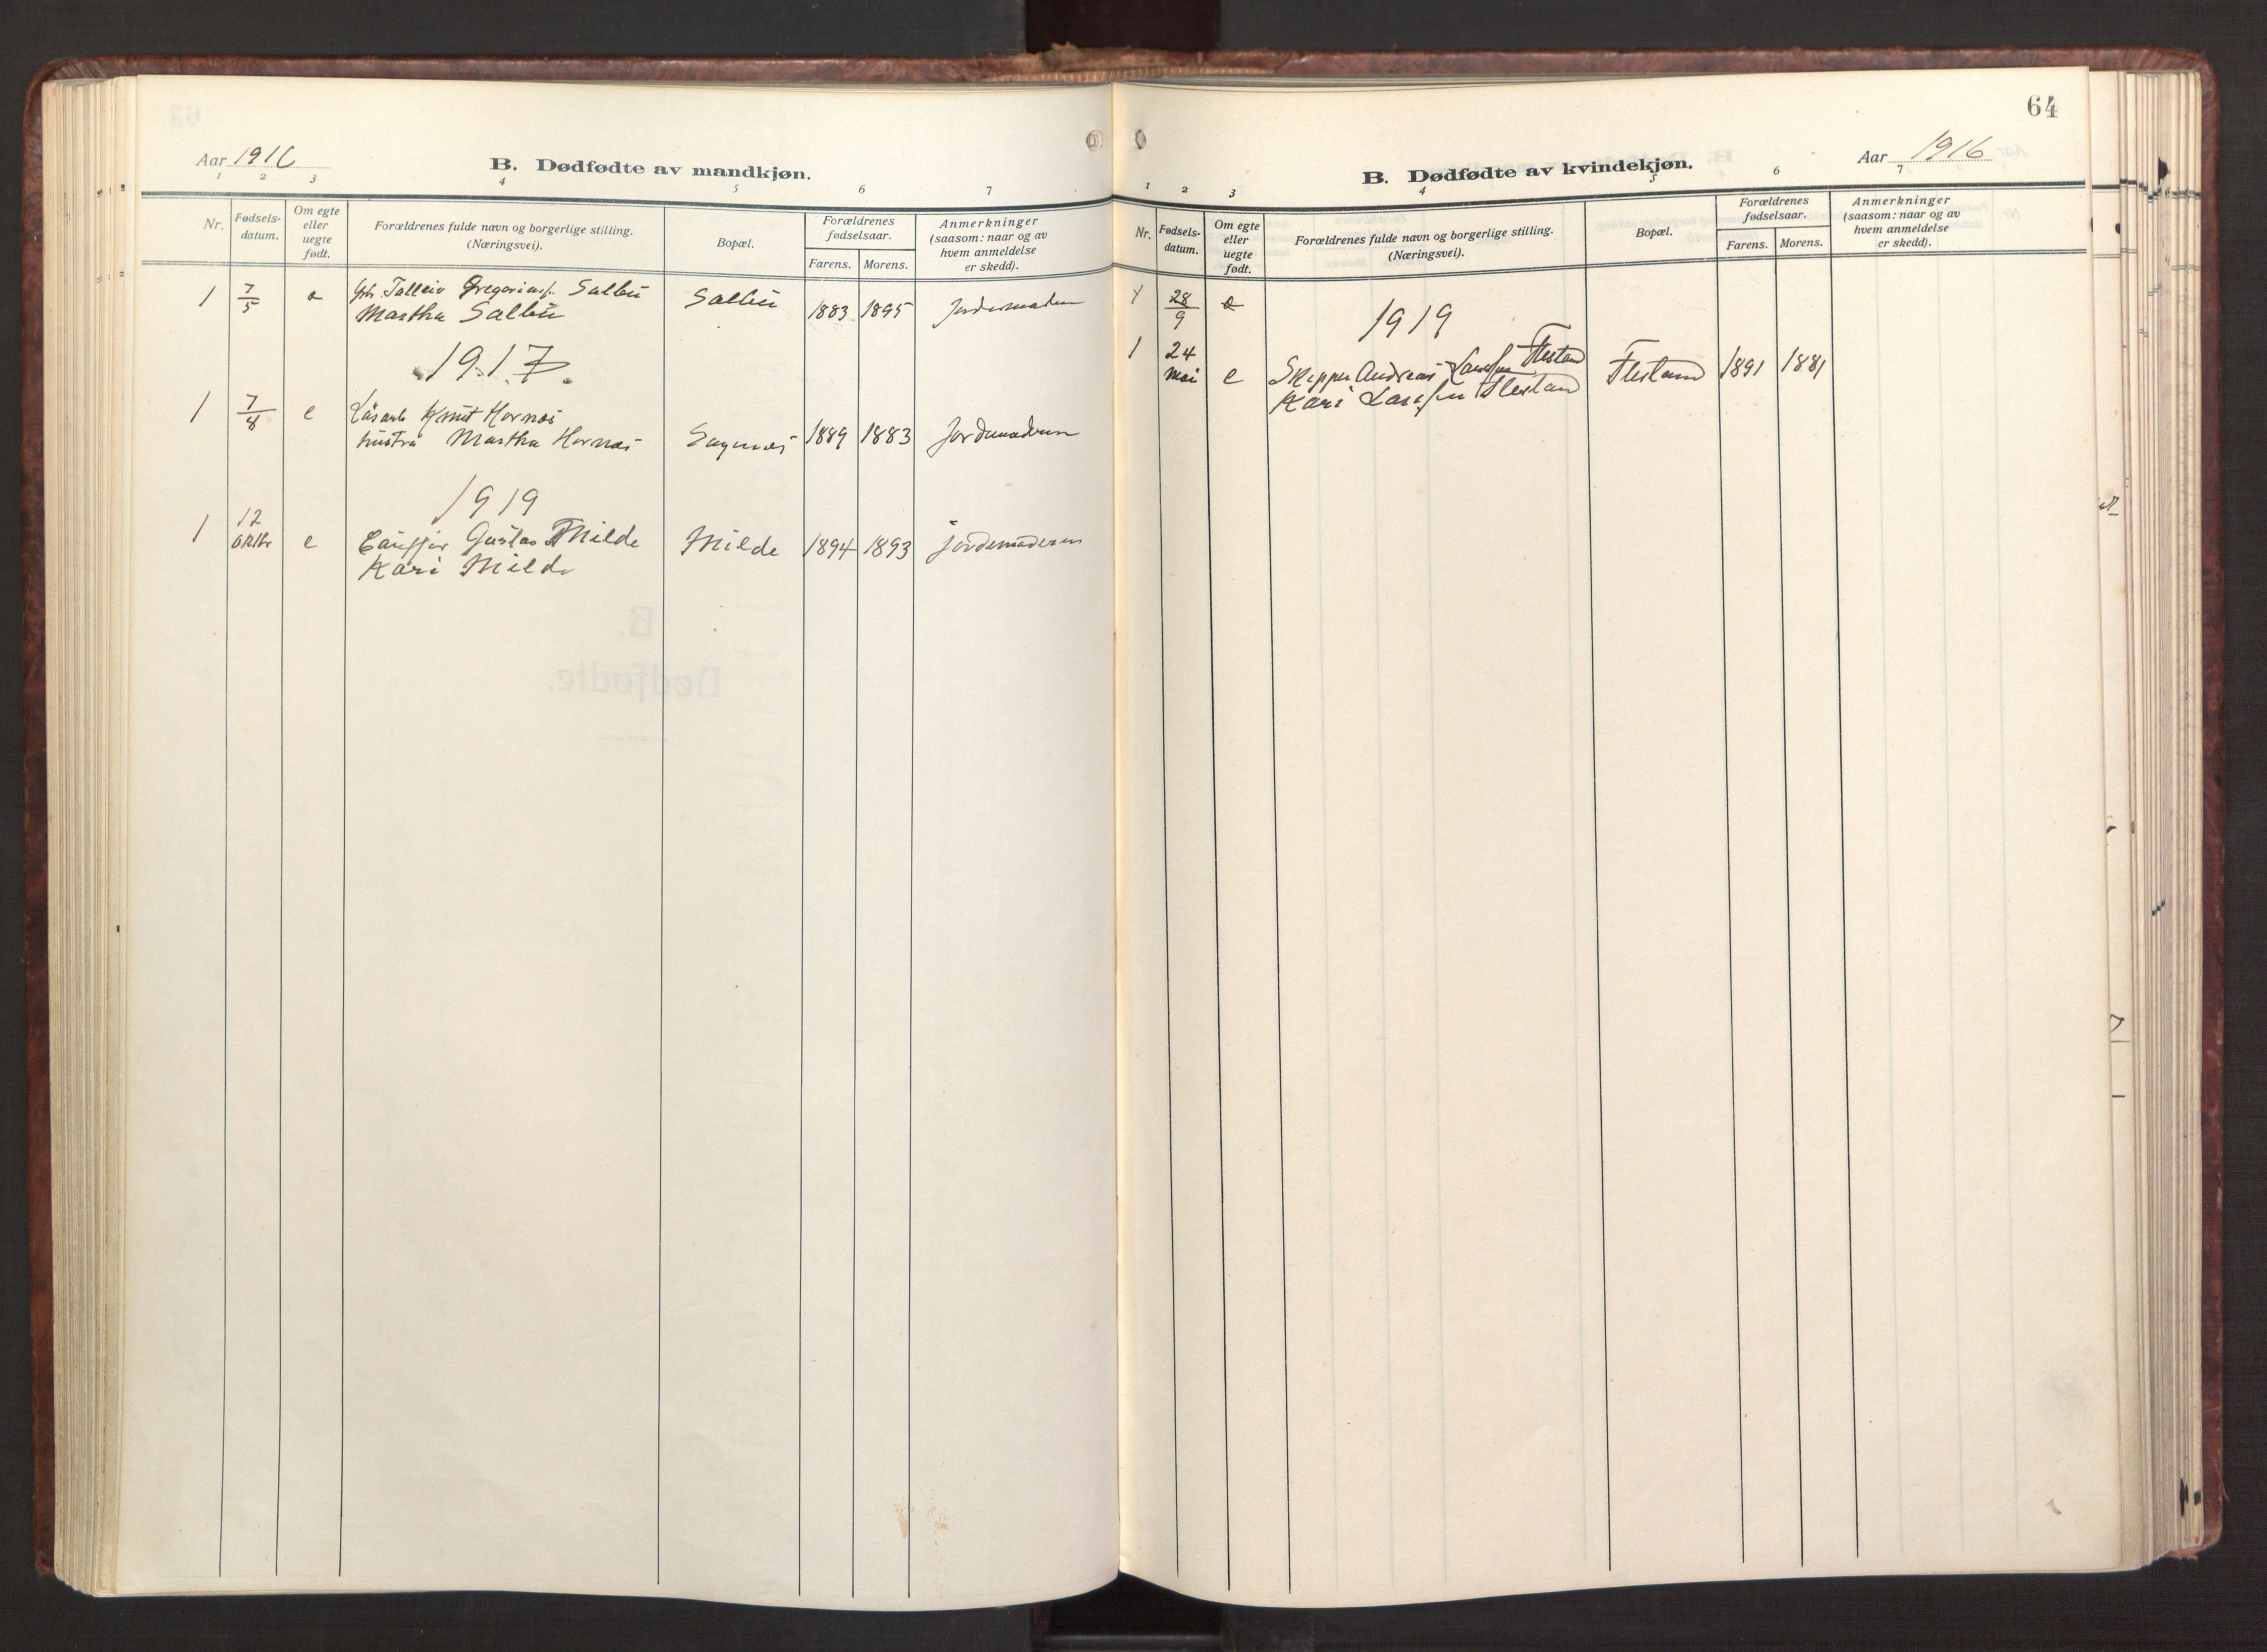 64
Aar 1916
B. Dødfødte av mandkjøn.
1 2 3 4 5 6 7
Nr.
Fødsels-
datum.
Om egte
eller
uegte
født.
Forældrenes fulde navn og borgerlige stilling.
(Næringsvei).
Bopæl.
Forældrenes
fødselsaar.
Farens. Morens.
Anmerkninger
(saasom: naar og av
hvem anmeldelse
er skedd).
1 7/5 Salbu Salbu 1883 1895
Martha Salbu
1917
1 7/8 e Knut Hornæs
hustru Martha Hornæs 1889 1883 Jordmoderen
1919
1 12 oktbr e Gustav Milde Milde 1894 1893 jordemoderen
Kari Milde
Aar 1916
B. Dødfødte av kvindekjøn.
1 2 3 4 5 6 7
Nr.
Fødsels-
datum.
Om egte
eller
uegte
født.
Forældrenes fulde navn og borgerlige stilling.
(Næringsvei).
Bopæl.
Forældrenes
fødselsaar.
Farens. Morens.
Anmerkninger
(saasom: naar og av
hvem anmeldelse
er skedd).
1 28/9 e
1919
1 24 mai e Skipper Andreas 1891 1881
Kari
B.
Dødfødte.